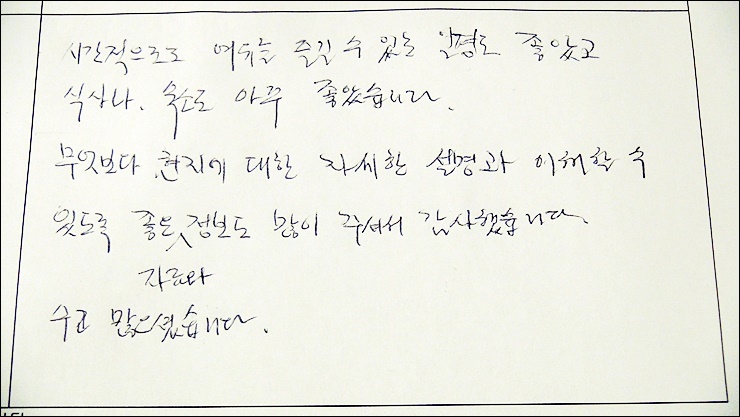 시간적으로도 여유를 즐길 수 있는 일정도 좋았고
식사나, 숙소도 아주 좋았습니다.
무엇보다 현지에 대한 자세한 설명과 이해할 수
있도록 좋은 정보도 많이 주셔서 감사했습니다.
자료와
수고 많으셨습니다.